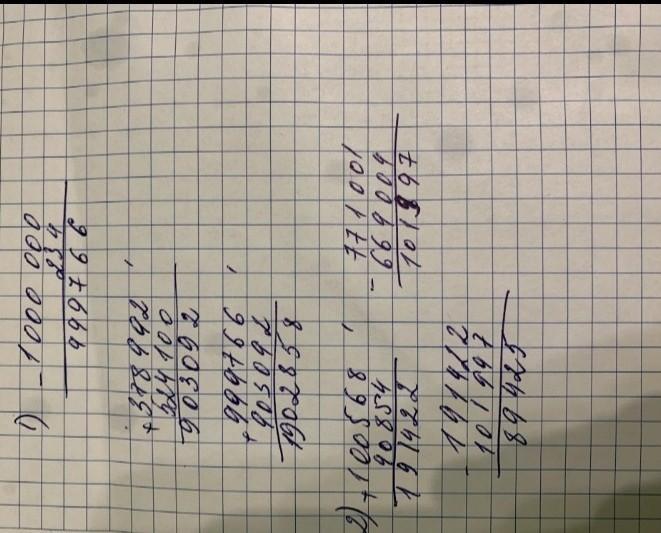 1) - 1000 000
234
999766
+ 378992
524100
903092
+ 999766
903092
1902858
2) + 100568
90854
191422
- 771001
669004
101997
- 191422
101997
89425